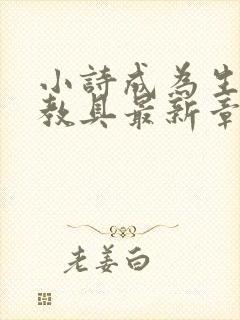 小詩成為生
教具最新章
老姜白